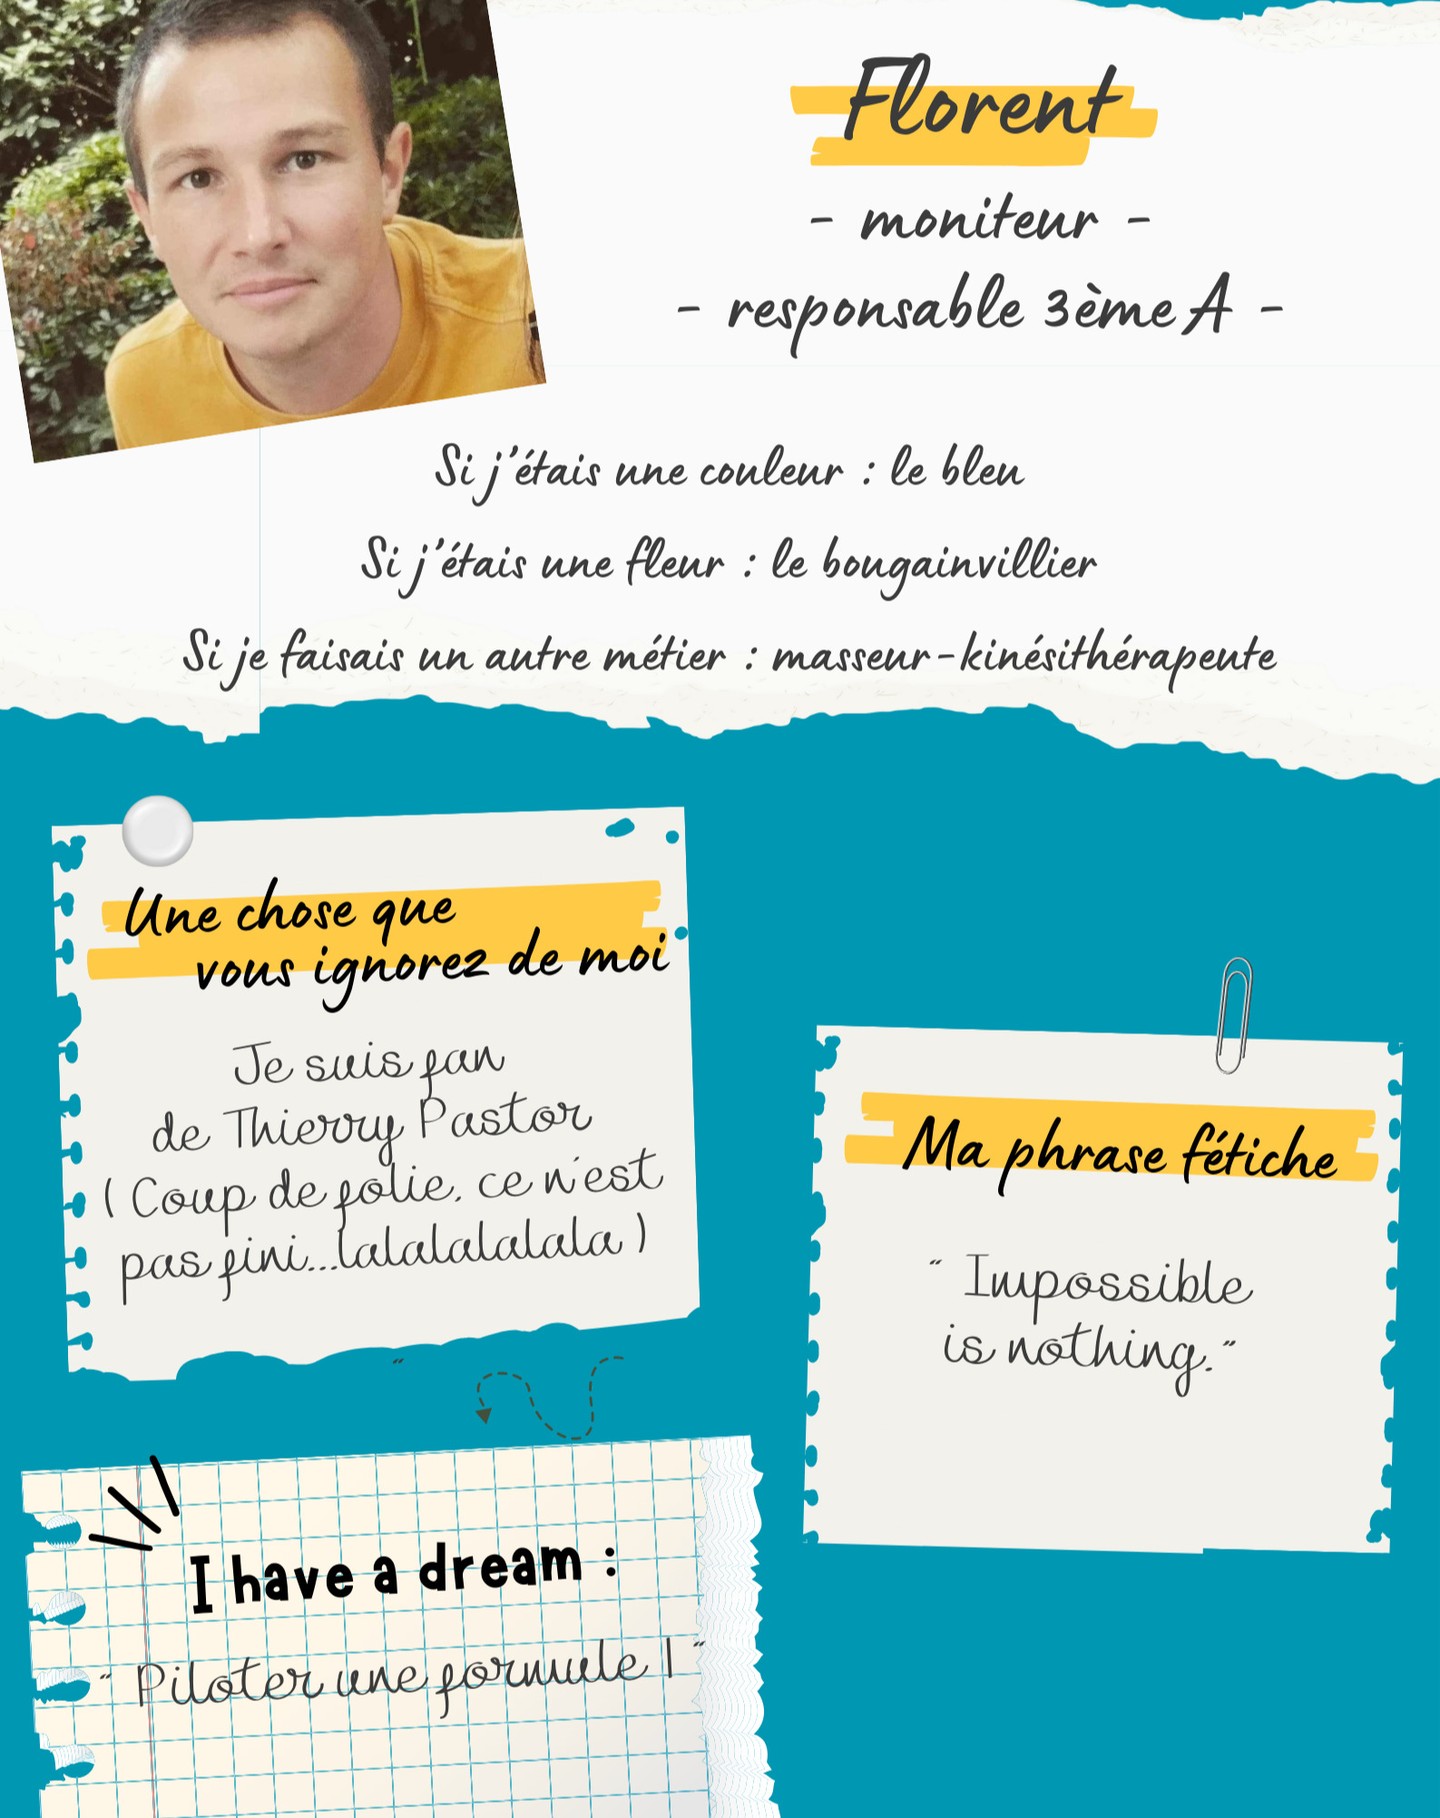 Florent
- moniteur -
- responsable 3ème A -
Si j'étais une couleur : le bleu
Si j'étais une fleur : le bougainvillier
Si je faisais un autre métier : masseur-kinésithérapeute
Une chose que
vous ignorez de moi
Je suis fan
de Thierry Pastor
( Coup de folie, ce n'est
pas fini...lalalalalala )
Ma phrase fétiche
" Impossible
is nothing."
"
I have a dream :
" Piloter une formule 1 "